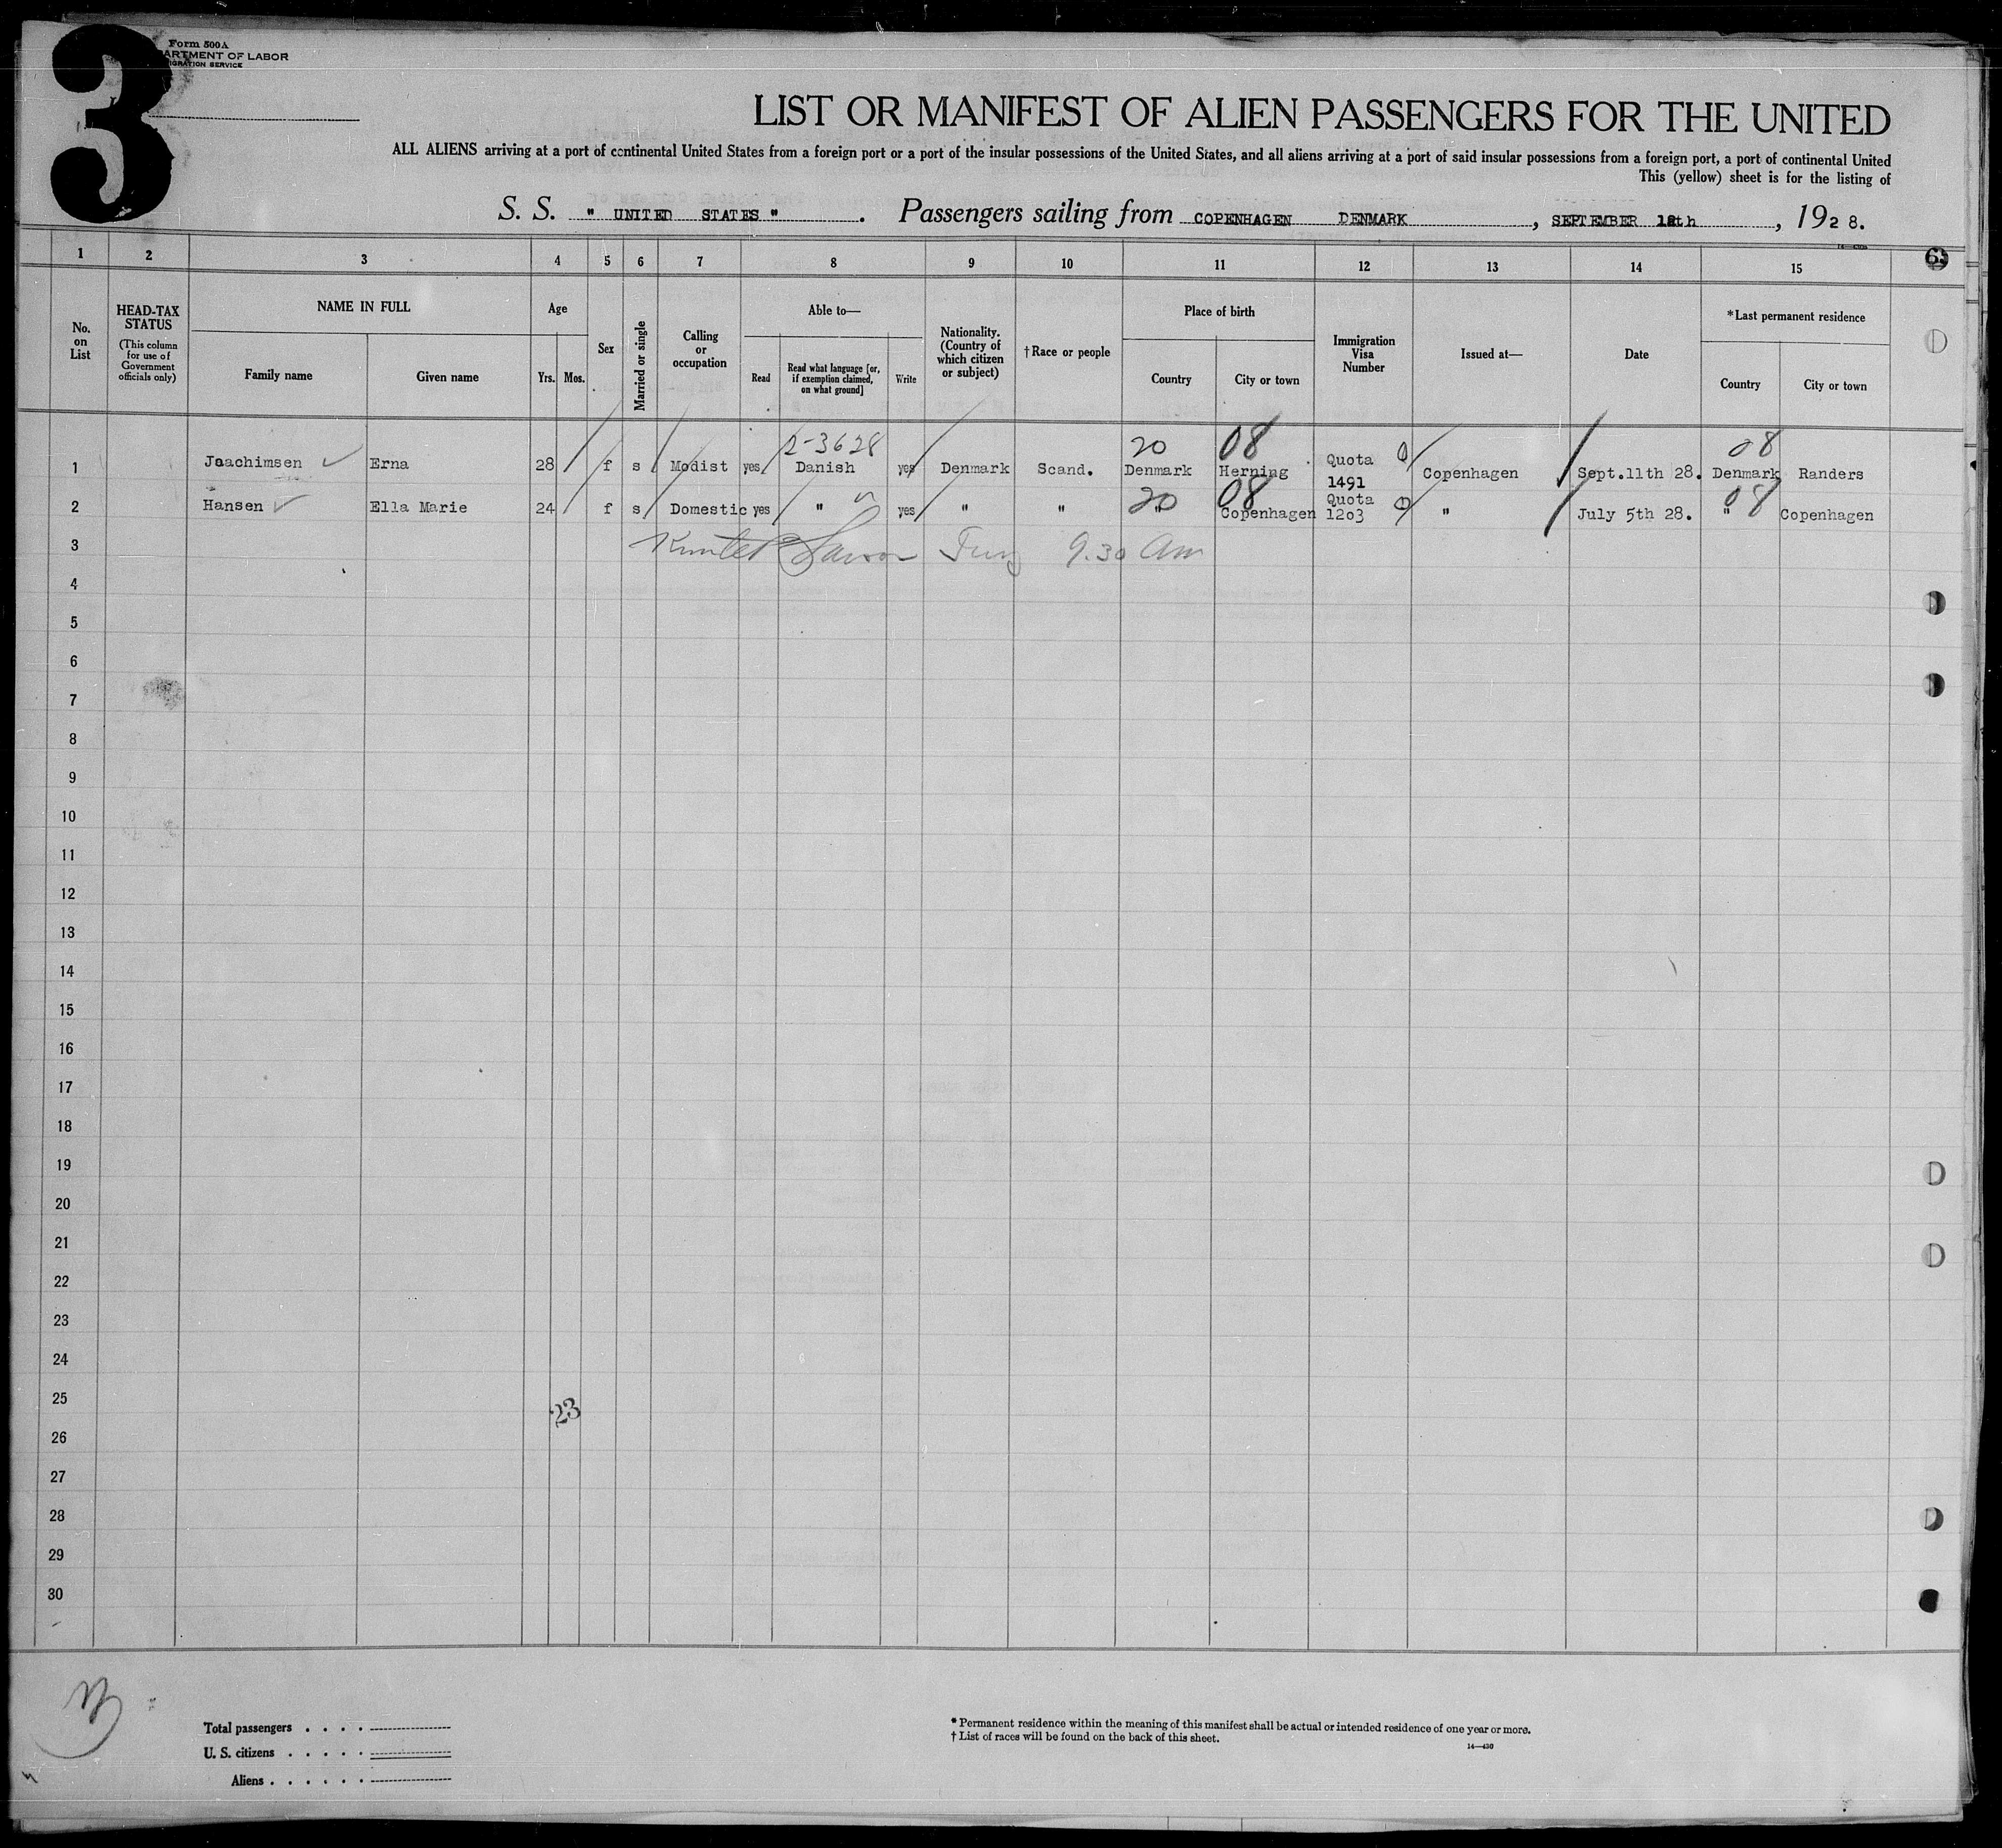 3
Form 500A
ARTMENT OF LABOR
IGRATION SERVICE
LIST OR MANIFEST OF ALIEN PASSENGERS FOR THE UNITED
ALL ALIENS arriving at a port of continental United States from a foreign port or a port of the insular possessions of the United States, and all aliens arriving at a port of said insular possessions from a foreign port, a port of continental United
This (yellow) sheet is for the listing of
S. S. " UNITED STATES " . Passengers sailing from COPENHAGEN DENMARK , SEPTEMBER 18th , 1928.
1 2 3 4 5 6 7 8 9 10 11 12 13 14 15
No. on List
HEAD-TAX STATUS
(This column for use of Government officials only)
NAME IN FULL
Family name Given name
Age
Yrs. Mos.
Sex
Married or single
Calling or occupation
Able to—
Read
Read what language [or, if exemption claimed, on what ground]
Write
Nationality. (Country of which citizen or subject)
†Race or people
Place of birth
Country City or town
Immigration Visa Number
Issued at—
Date
*Last permanent residence
Country City or town
2-3628 20 08 08
1 Joachimsen Erna 28 f s Modist yes Danish yes Denmark Scand. Denmark Herning Quota 1491 Copenhagen Sept.11th 28. Denmark Randers
20 08 08
2 Hansen Ella Marie 24 f s Domestic yes " yes " " " Copenhagen Quota 1203 " July 5th 28. " Copenhagen
3 9.30 Am
4
5
6
7
8
9
10
11
12
13
14
15
16
17
18
19
20
21
22
23
24
25
23
26
27
28
29
30
Total passengers . . . .
U. S. citizens . . . . .
Aliens . . . . . .
* Permanent residence within the meaning of this manifest shall be actual or intended residence of one year or more.
† List of races will be found on the back of this sheet.
14—430